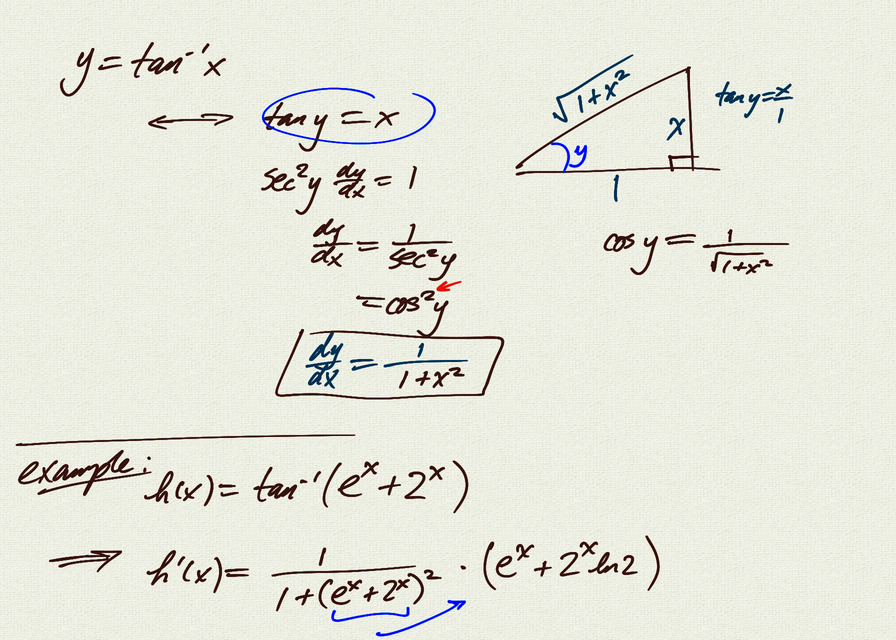 y = tan⁻¹x
⟷ tan y = x
sec²y dy/dx = 1
dy/dx = 1/sec²y
= cos²y
dy/dx = 1/(1+x²)
√(1+x²)
x
y
1
tan y = x/1
cos y = 1/√(1+x²)
example:
h(x) = tan⁻¹(eˣ + 2ˣ)
⟹ h'(x) = 1/(1+(eˣ+2ˣ)²) · (eˣ + 2ˣ ln 2)